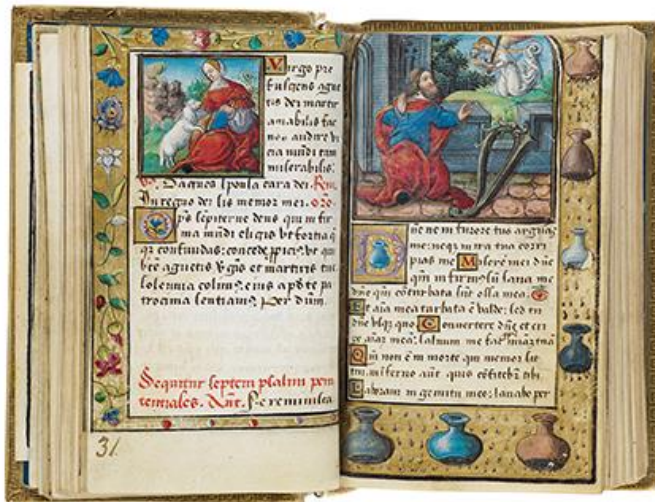 Virgo pre
fulgens agne
tis dei martir
amabilis fac
nos audire vi
cia mundi tam
miserabilis:
Vs. Dagnes spōsa cara dei. Rem
In regno dei sis memor mei. Oro
ps sēpiterne deus qui infir
ma mūdi eligis vt fortia q̄
q̄ confundas: concede ppici⁹. vt qui
btē agnetis v̄gis et martiris tue
solennia colim⁹. eius apd te pa
trocinia sentiam⁹. Per dūm.
Sequntur septem psalmi peni
tentiales. Ant. Ne reminisca
31
Dne ne in furore tuo arguas
me: neq̄ in ira tua corri
pias me. Miserē mei dn̄e
qm̄ infirm⁹ sū sana me
dn̄e qm̄ cōturbata sūt ossa mea.
Et aīa mea turbata ē valde: sed tu
dn̄e vsq̄ quo. Conuertere dn̄e et eri
pe aīaz meā: saluum me fac
Qm̄ non ē in morte qui memor sit
tui: in ferno aūt quis cōfitebr̄ tibi.
Laboraui in gemitu meo: lauabo per